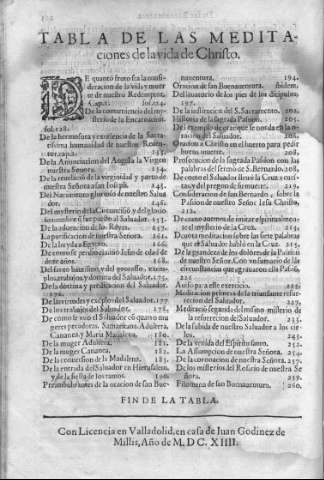 TABLA DE LAS MEDITA-
ciones de la vida de Christo.
DE quanto fruto sea la consi-
deracion de la vida y muer
te de nuestro Redemptor.
Cap. 1. fol. 124.
De la conveniencia del my-
sterio de la Encarnacion.
fol. 128.
De la hermosura y excelencia de la Sacra-
tissima humanidad de nuestro Reden-
tor.
De la Anunciacion del Angel a la Virgen
nuestra Señora. 134.
De la revelacion de la virginidad y parto de
nuestra Señora a san Ioseph. 145.
Del Nacimiento glorioso de nuestro Salua
dor. 148.
Del mysterio de la Circuncision, y del glorioso
nombre que pusieron al Saluador.
De la adoracion de los Reyes. 157.
La purificacion de nuestra Señora. 162.
De la huyda a Egypto. 166.
De como se perdio el niño Iesus de edad de
doze años. 168.
Del santo bautismo, y del
y tentacion del Saluador. 170.
De la dotrina y predicacion del Saluador.
172.
De las virtudes y exemplos del Saluador. 177
De los trabajos del Saluador. 178.
De como se uvo el Saluador con quatro mu
geres pecadoras, Samaritana, Adultera,
Cananea y Maria Madalena. 180.
De la muger Adultera. 181.
De la muger Cananea. 182.
De la conuersion de la Madalena. 185.
De la entrada del Saluador en Hierusalem,
y de la fiesta de los ramos. 190.
Preambulo de la oracion de san Bue-
nauentura. 194.
Oracion de san Buenauentura. ibidem.
Del lauatorio de los pies de los dicipulos
197.
De la institucion del S. Sacramento. 202.
Historia de la sagrada Passion. 205.
Oracion a Christo en el huerto para pedir
buena muerte. 208.
Prosecucion de la sagrada Passion con las
palabras del sermo de S. Bernardo. 208.
De como el Saluador lleuò la Cruz a cues-
tas, y del pregon de su muerte. 219.
Consideracion de san Bernardo, sobre la
Passion de nuestro Señor Iesu Christo.
212.
el mysterio de la Cruz. 213.
Deuota meditacion sobre las siete palabras
que el Saluador hablò en la Cruz. 215.
De la grandeza de los dolores de la Passion
de nuestro Señor. Con vn sumario de las
circunstancias que agrauaron esta Passion.
Auiso para este exercicio. 225.
Meditacion primera de la triunfante resur
reccion del Saluador. 227.
Meditacion segunda del mismo misterio de
la resurreccion del Saluador. 235.
De la subida de nuestro Saluador a los cie
los. 243.
De la venida del Espiritu santo. 252.
La Assumpcion de nuestra Señora. 254.
De la coronacion de nuestra Señora. 257.
De los misterios del Rosario de nuestra Se
ñora. 259.
Filomena de san Buenauentura. 260.
FIN DE LA TABLA.
Con Licencia en Valladolid, en casa de Iuan Godinez de
Millis, Año de M. D C. XIIII.